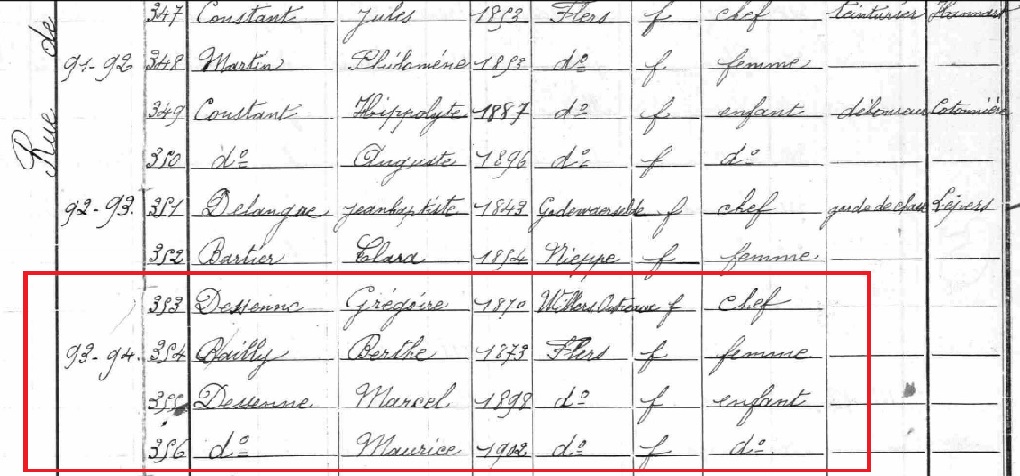 Rue de
347 Constant Jules 1853 Flers f chef teinturier
91-92 348 Martin Philomène 1853 do f femme
349 Constant Hippolyte 1887 do f enfant Cotonnière
350 do Auguste 1896 do f do
92-93. 351 Delangue jeanbaptiste 1843 Godewaersvelde f chef garde de chasse Lepers
352 Bartier Clara 1854 Nieppe f femme
353 Desienne Grégoire 1870 Willers f chef
93-94. 354 Bailly Berthe 1873 Flers f femme
355 Desienne Marcel 1898 do f enfant
356 do Maurice 1902 do f do